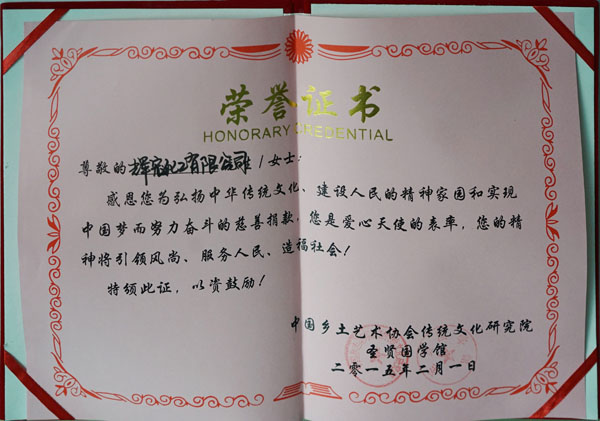 荣誉证书
HONORARY CREDENTIAL
尊敬的 有限公司 / 女士：
感恩您为弘扬中华传统文化、建设人民的精神家园和实现
中国梦而努力奋斗的慈善捐款，您是爱心天使的表率，您的精
神将引领风尚、服务人民、造福社会！
特颁此证，以资鼓励！
中国乡土艺术协会传统文化研究院
圣贤国学馆
二零一五年二月一日